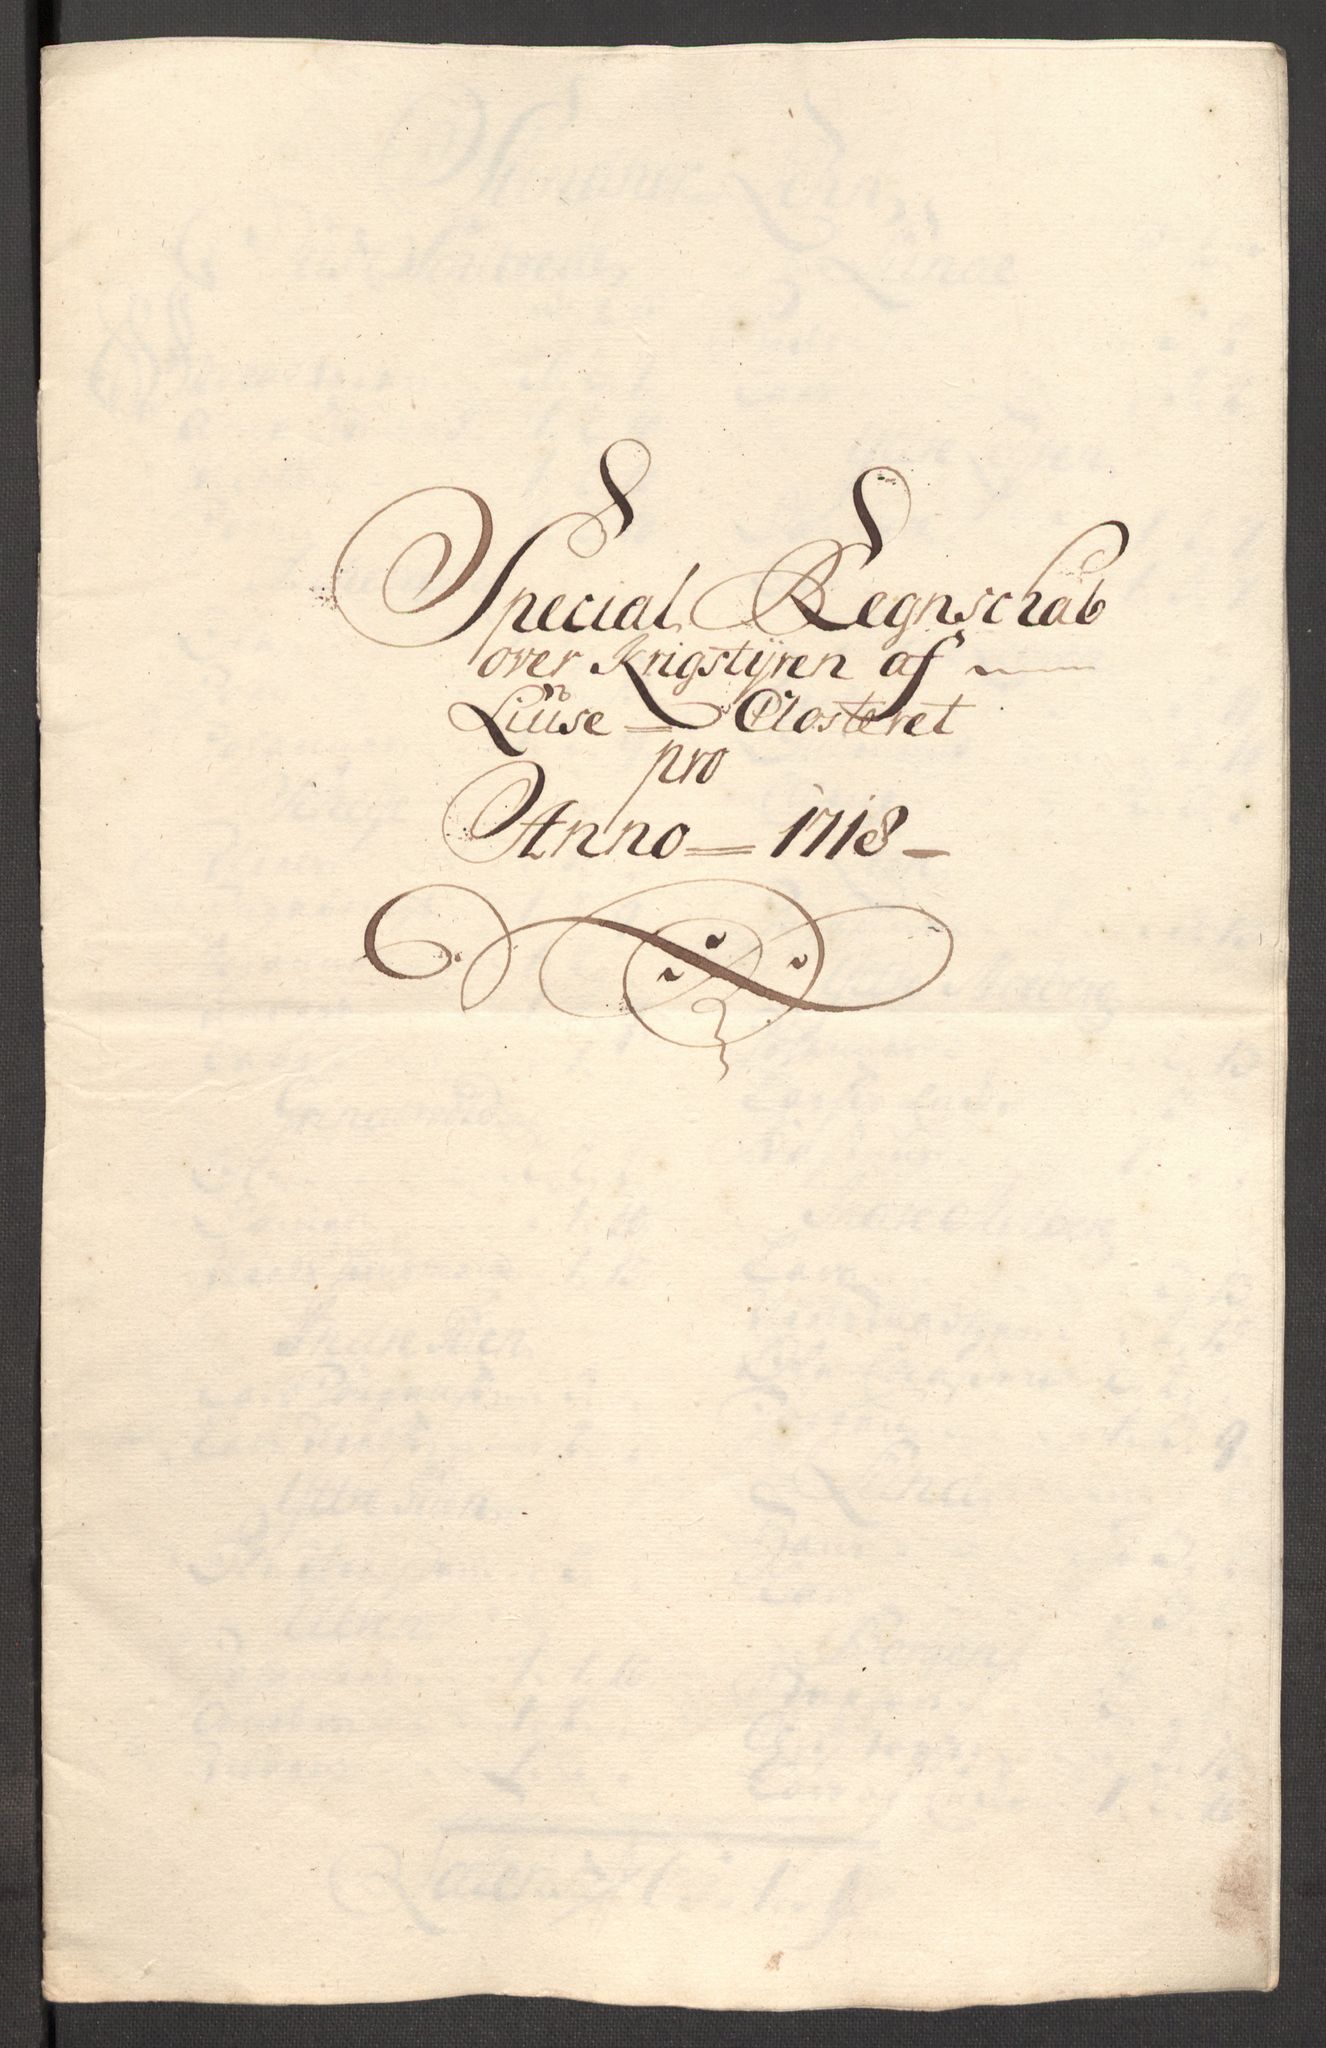 Special Regnschab
over Krigstÿren af
Liüse = Closteret
pro
Anno = 1718 -